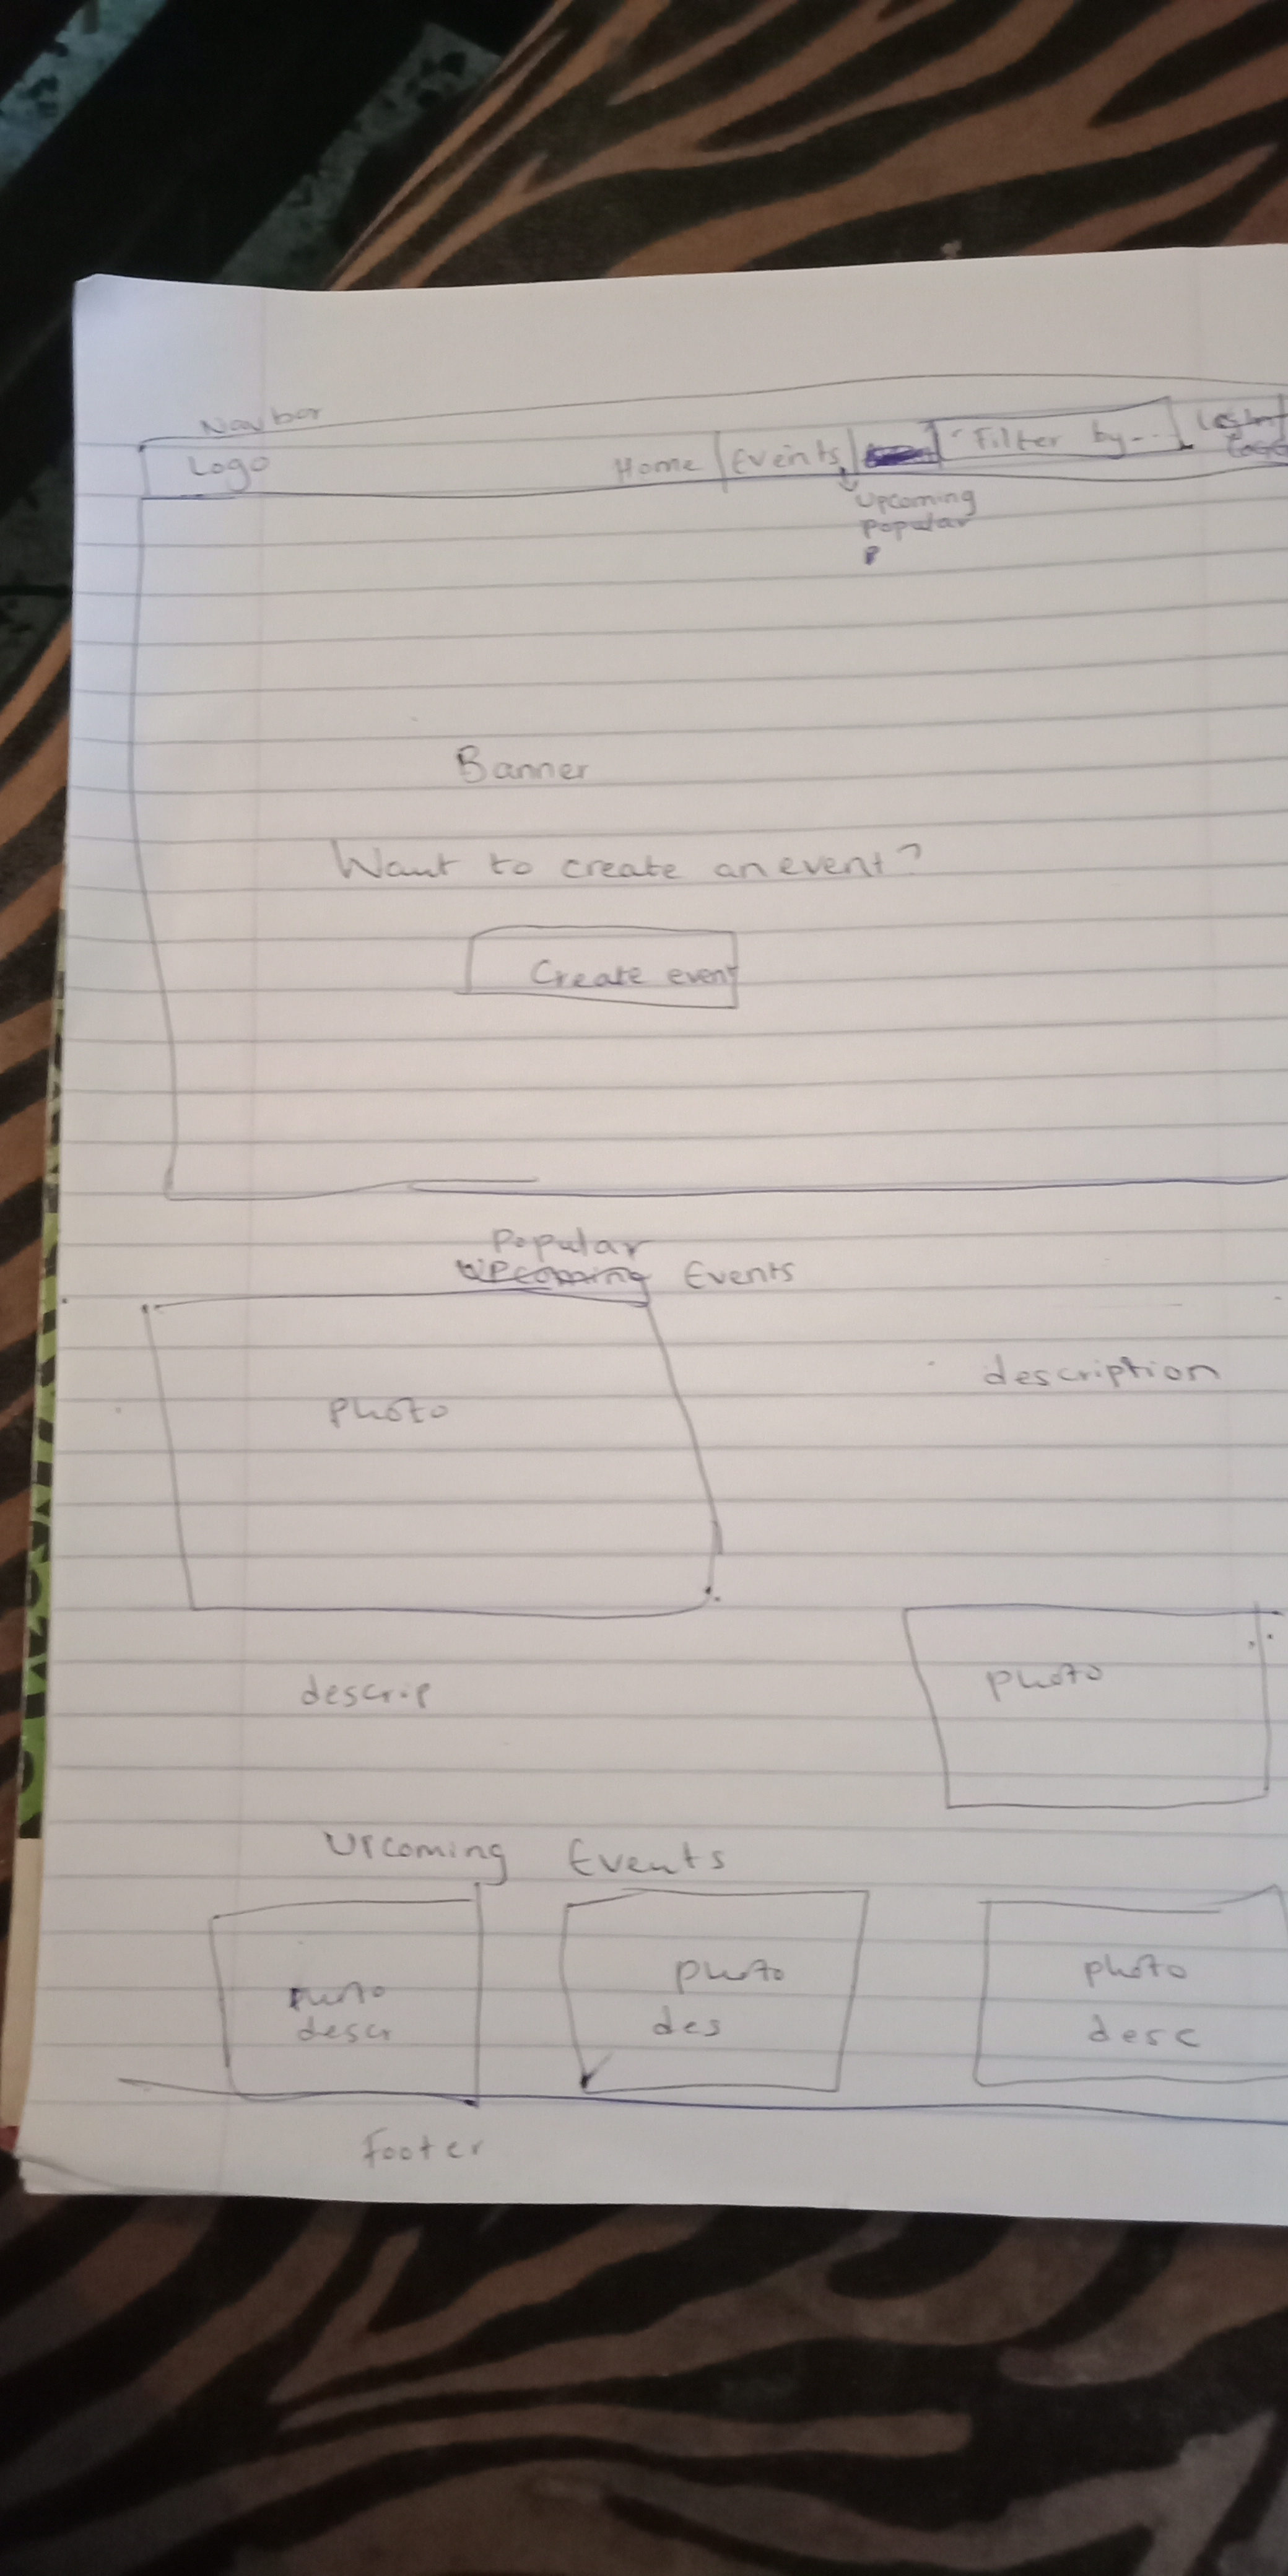 Navbar
Logo Home Events Filter by...
Upcoming
Popular
Banner
Want to create an event?
Create event
Popular
Upcoming Events
photo
description
descrip
photo
Upcoming Events
photo photo photo
descr des desc
Footer